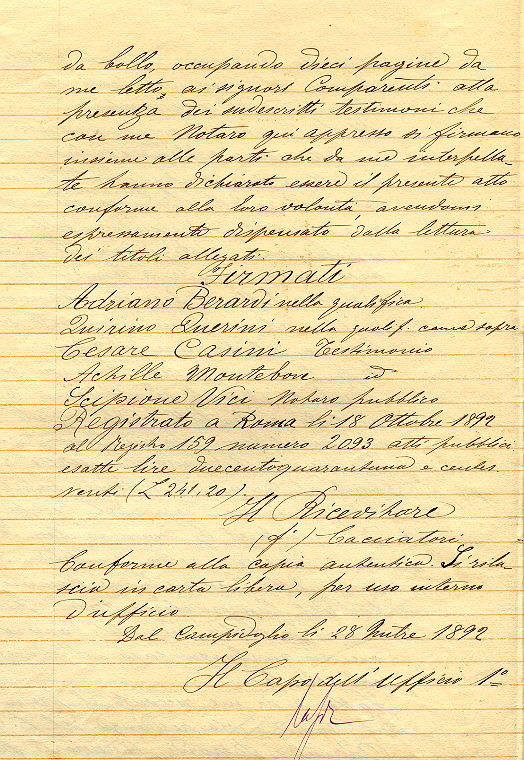 da bollo, occupando dieci pagine da
me letto, ai signori Comparenti alla
presenza dei sudescritti testimoni che
con me Notaro qui appresso si firmano
insieme alle parti che da me interpella-
te hanno dichiarato essere il presente atto
conforme alla loro volontà, avendomi
espressamente dispensato dalla lettura
dei titoli allegati.
Firmati
Adriano Berardi nella qualifica
Quirino Querini nella qualif. come sopra
Cesare Casini Testimonio
Achille Montebove id
Scipione Vici Notaro pubblico
Registrato a Roma li 18 Ottobre 1892
al registro 159 numero 2093 atti pubblici
esatte lire duecentoquarantuna e centes.
venti (L 241,20)
Il Ricevitore
(f°) Cacciatori
Conforme alla copia autentica. Si rila-
scia in carta libera, per uso interno
d'ufficio
Dal Campidoglio li 28 9mbre 1892
Il Capo dell'Ufficio 1°